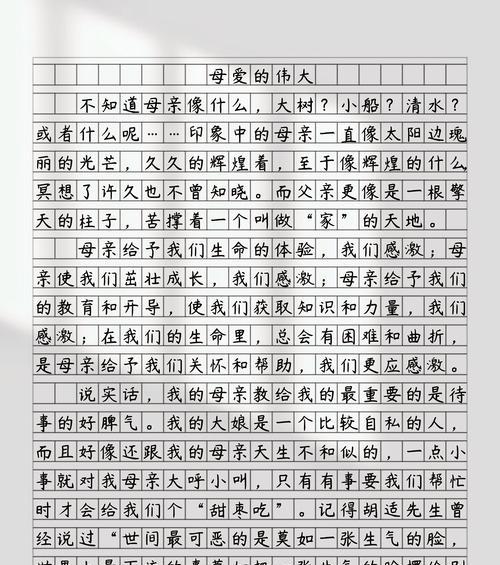 母爱的伟大
不知道母亲像什么，大树？小船？清水？
或者什么呢……印象中的母亲一直像太阳边瑰
丽的光芒，久久的辉煌着，至于像辉煌的什么
冥想了许久也不曾知晓。而父亲更像是一根擎
天的柱子，苦撑着一个叫做“家”的天地。
母亲给予我们生命的体验，我们感激；母
亲使我们茁壮成长，我们感激；母亲给予我们
的教育和开导，使我们获取知识和力量，我们
感激；在我们的生命里，总会有困难和曲折，
是母亲给予我们关怀和帮助，我们更应感激。
说实话，我的母亲教给我的最重要的是待
事的好脾气。我的大娘是一个比较自私的人，
而且好像还跟我的母亲天生不和似的，一点小
事就对我母亲大呼小叫，只有有事要我们帮忙
时才会给我们个“甜枣吃”。记得胡适先生曾
经说过“世间最可恶的是莫如一张生气的脸，